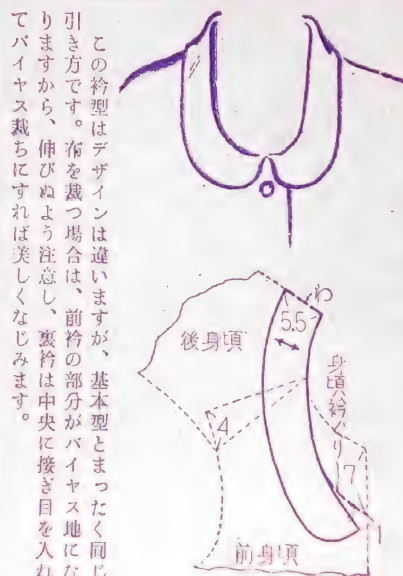 この衿型はデザインは違いますが、基本型とまったく同じ
引き方です。布を裁つ場合は、前衿の部分がバイヤス地にな
りますから、伸びぬよう注意し、裏衿は中央に接ぎ目を入れ
てバイヤス裁ちにすれば美しくなじみます。
わ
5.5
後身頃
身頃衿ぐり
4
7
1
前身頃